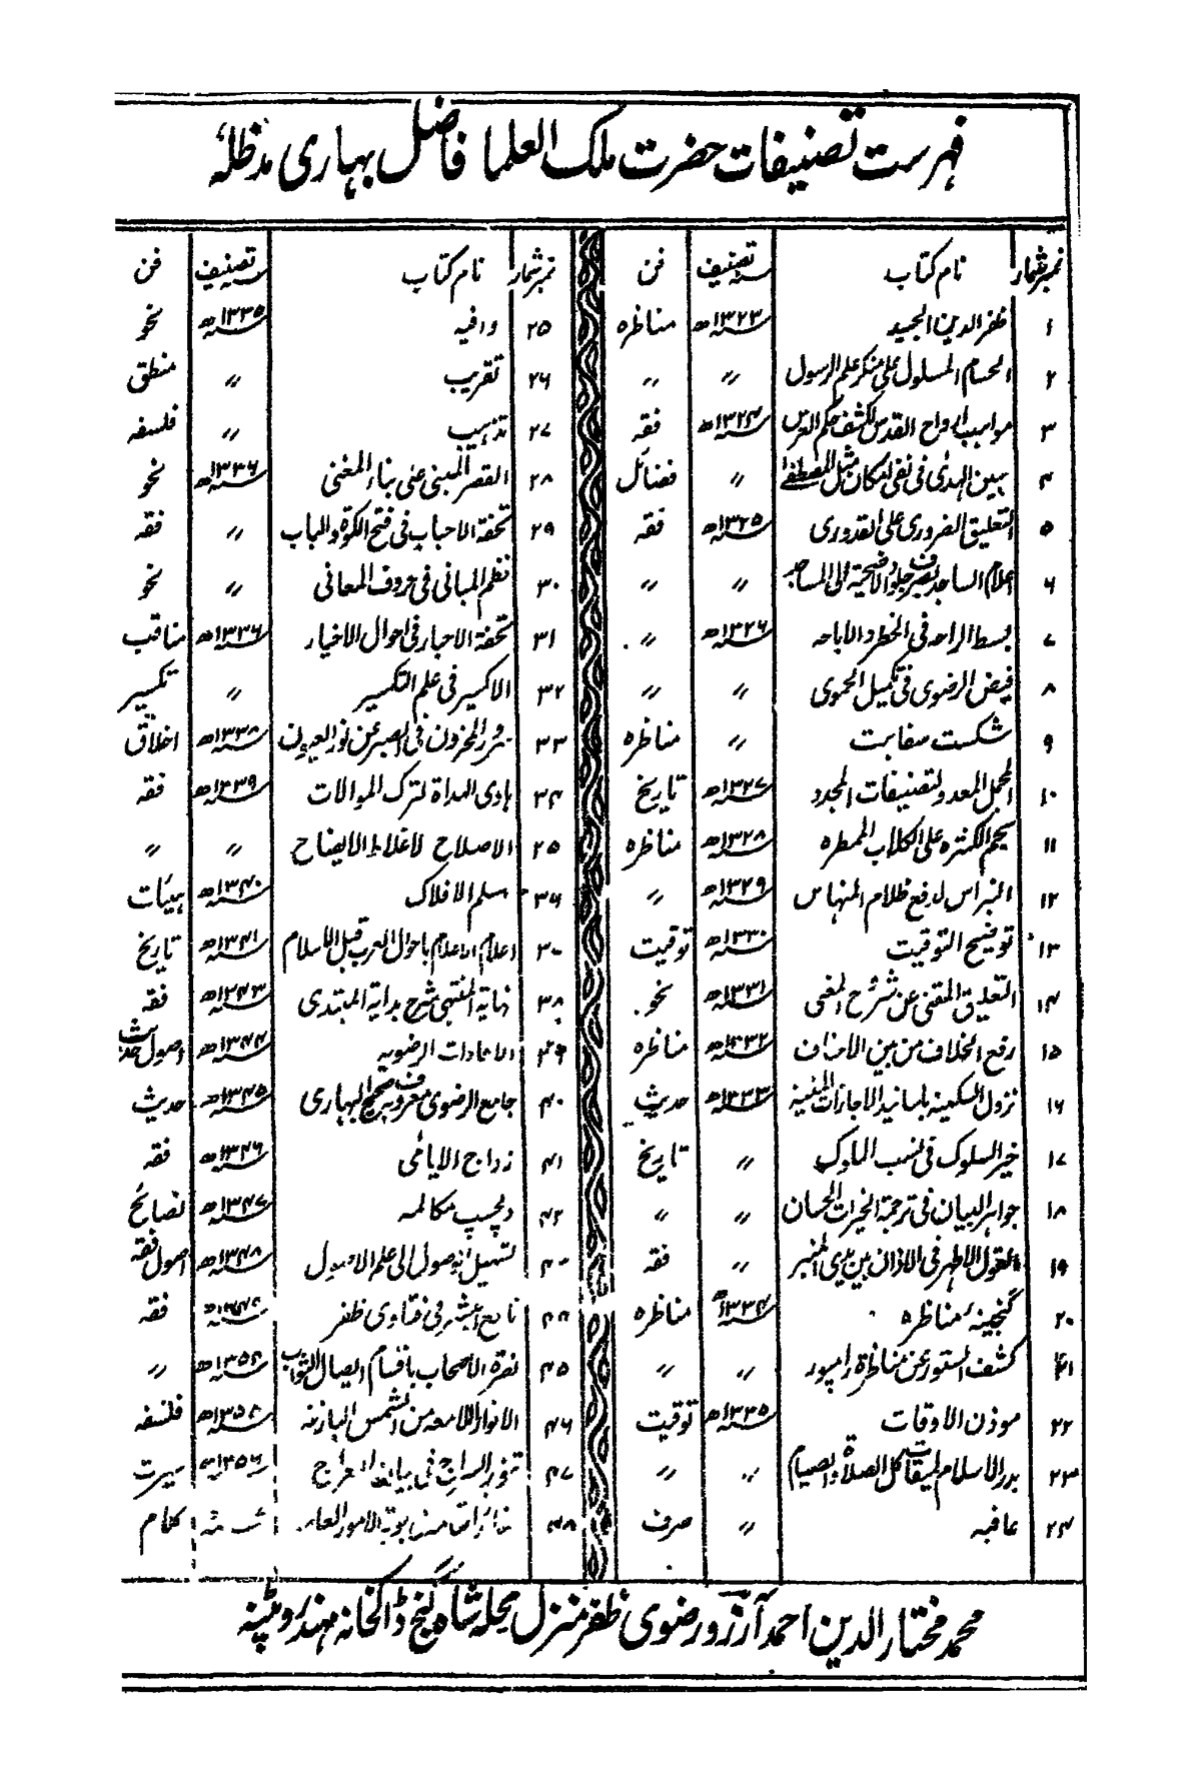 فہرست تصنیفات حضرت ملک العلما فاضل بہاری مدظلہٗ
نمبرشمار نام کتاب سنہ تصنیف فن
۱ ظفرالدین الجید ۱۳۲۳ھ مناظرہ
۲ الحسام المسلول علی منکر علم الرسول 〃 〃
۳ مواہب ارواح القدس لکشف حکم العرس ۱۳۲۴ھ فقہ
۴ مبین الہدیٰ فی نفی امکان مثل المصطفےٰ 〃 فضائل
۵ التعلیق الضروری علی القدوری ۱۳۲۵ھ فقہ
۶ اعلام الساجد بصرف جلود الاضحیۃ الی المساجد 〃 〃
۷ بسط الراحہ فی الخطر والاباحہ ۱۳۲۶ھ 〃
۸ فیض الرضوی فی تکمیل الحموی 〃 〃
۹ شکست سفاہت 〃 مناظرہ
۱۰ المجمل المعدد لتصنیفات المجدد ۱۳۲۷ھ تاریخ
۱۱ علی الکلاب الممطرہ ۱۳۲۸ھ مناظرہ
۱۲ النبراس لدفع ظلام المنہاس ۱۳۲۹ھ 〃
۱۳ توضیح التوقیت ۱۳۳۰ھ توقیت
۱۴ التعلیق المغنی عن شرح المغنی ۱۳۳۱ھ نحو
۱۵ رفع الخلاف من بین الاحناف ۱۳۳۲ھ مناظرہ
۱۶ نزول السکینہ باسانید الاجازات المتینہ ۱۳۳۳ھ حدیث
۱۷ خیر السلوک فی نسب الملوک 〃 تاریخ
۱۸ جواہر البیان فی ترجمۃ الخیرات الحسان 〃 〃
۱۹ القول الاظہر فی الاذان بین یدی المنبر 〃 فقہ
۲۰ گنجینۂ مناظرہ ۱۳۳۴ھ مناظرہ
۲۱ کشف الستور عن مناظرۃ رامپور 〃 〃
۲۲ موذن الاوقات ۱۳۳۵ھ توقیت
۲۳ بدر الاسلام لمیقات کل الصلاۃ والصیام 〃 〃
۲۴ عافیہ 〃 صرف
نمبرشمار نام کتاب سنہ تصنیف فن
۲۵ وافیہ ۱۳۳۵ھ نحو
۲۶ تقریب 〃 منطق
۲۷ تذہیب 〃 فلسفہ
۲۸ القصر المبنی علی بناء المغنی ۱۳۳۶ھ نحو
۲۹ تحفۃ الاحباب فی فتح الکوۃ والباب 〃 فقہ
۳۰ نظم المبانی فی حروف المعانی 〃 نحو
۳۱ تحفۃ الاحبار فی احوال الاخیار ۱۳۳۶ھ مناقب
۳۲ الاکسیر فی علم التکسیر 〃 تکسیر
۳۳ سرور المحزون فی الصبر عن نور العیون ۱۳۳۸ھ اخلاق
۳۴ ہادی الہداۃ لترک الموالات ۱۳۳۹ھ فقہ
۲۵ الاصلاح لاغلاط الایضاح 〃 〃
۳۶ سلم الافلاک ۱۳۴۰ھ ہیئات
۳۷ اعلام الاعلام باحوال العرب قبل الاسلام ۱۳۴۱ھ تاریخ
۳۸ نہایۃ المنتہی شرح ہدایۃ المبتدی ۱۳۴۳ھ فقہ
۳۹ الافادات الرضویہ ۱۳۴۴ھ اصول حدیث
۴۰ جامع الرضوی معروف بصحیح البہاری ۱۳۴۵ھ حدیث
۴۱ زواج الایامٰی ۱۳۴۶ھ فقہ
۴۲ دلچسپ مکالمہ ۱۳۴۷ھ نصائح
تسہیل الوصول الی علم الاصول ۱۳۴۸ھ اصول فقہ
۴۴ نافع البشر فی فتاوی ظفر ۱۳۴۹ھ فقہ
۴۵ نصرۃ الاصحاب باقسام ایصال الثواب ۱۳۵۴ھ 〃
۴۶ الانوار اللامعہ من الشمس البازغہ فلسفہ
۴۷ تنویر السراج فی بیان المعراج ۱۳۵۶ھ سیرت
۴۸ کلام
محمد مختار الدین احمد آرزو رضوی ظفر منزل محلہ شاہ گنج ڈاکخانہ مہندرو پٹنہ